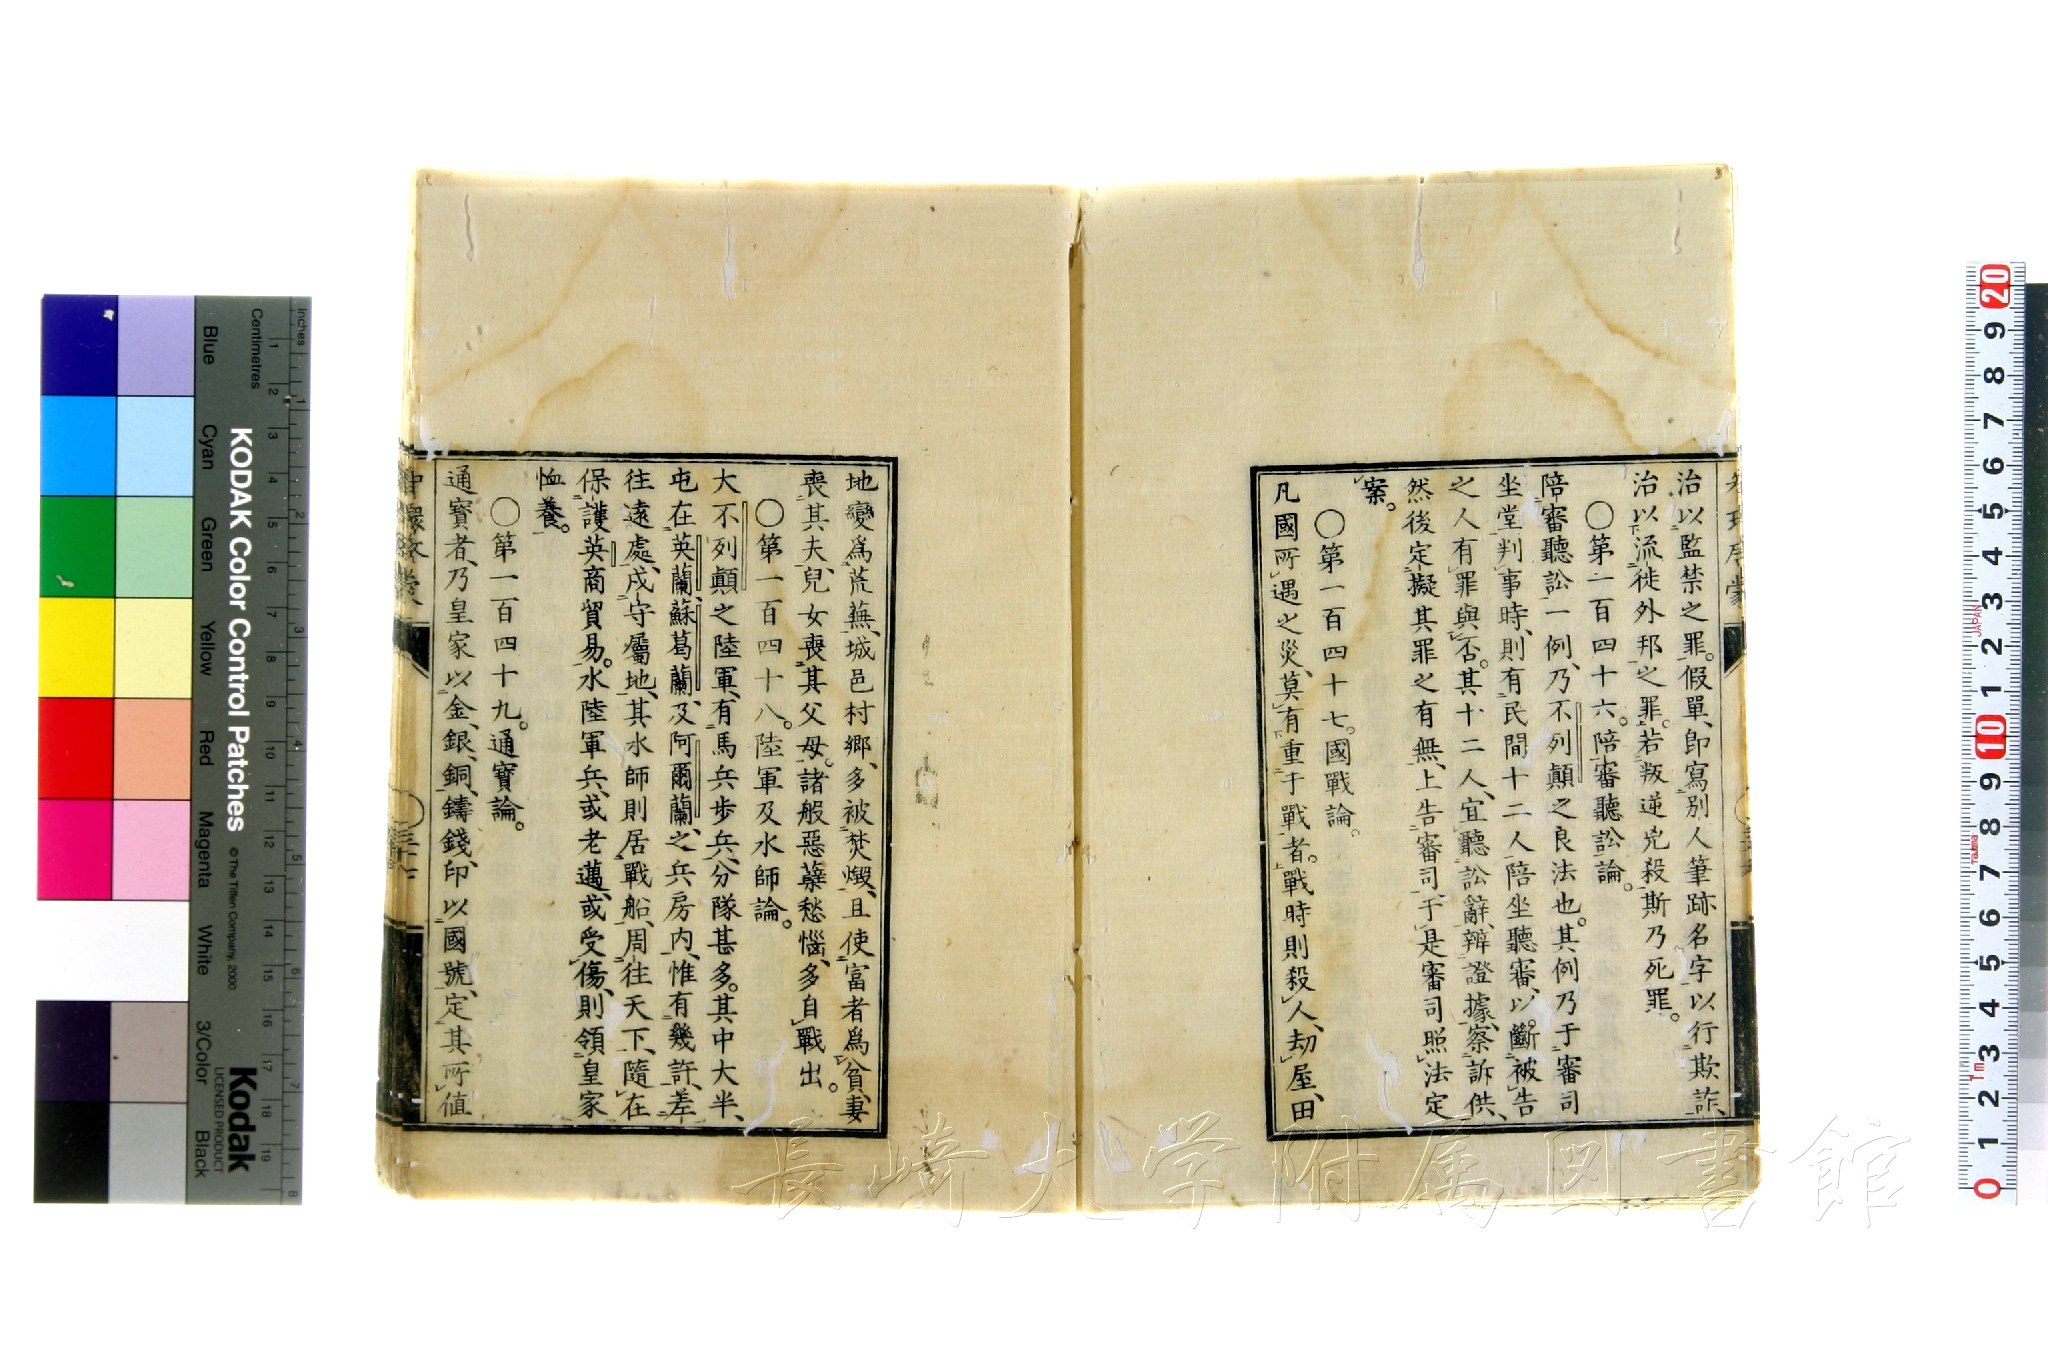 治以監禁之罪。假單、卽寫別人筆跡名字以行欺詐、
治以流徙外邦之罪。若叛逆兇殺斯乃死罪。
〇第一百四十六。陪審聽訟論。
陪審聽訟一例、乃不列顛之良法也。其例乃于審司
坐堂判事時、則有民間十二人陪坐聽審、以斷被告
之人有罪與否。其十二人、宜聽訟辭、辨證據、察訴供、
然後定擬其罪之有無、上告審司、于是審司照法定
案。
〇第一百四十七。國戰論。
凡國所遇之災、莫有重于戰者。戰時則殺人、劫屋、田
地變爲荒蕪、城邑村鄉、多被焚燬、且使富者爲貧、妻
喪其夫、兒女喪其父母。諸般惡孽愁惱、多自戰出。
〇第一百四十八。陸軍及水師論。
大不列顛之陸軍、有馬兵步兵、分隊甚多。其中大半、
屯在英蘭、蘇葛蘭、及阿爾蘭之兵房內、惟有幾許、差
往遠處、戍守屬地、其水師則居戰船、周往天下、隨在
保護英商貿易。水陸軍兵、或老邁、或受傷、則領皇家
恤養。
〇第一百四十九。通寶論。
通寶者、乃皇家以金、銀、銅、鑄錢、印以國號、定其所値
KODAK Color Control Patches
© The Tiffen Company, 2000
Kodak
LICENSED PRODUCT
Inches
Centimetres
Blue
Cyan
Green
Yellow
Red
Magenta
White
3/Color
Black
長崎大学附属図書館
JAPAN